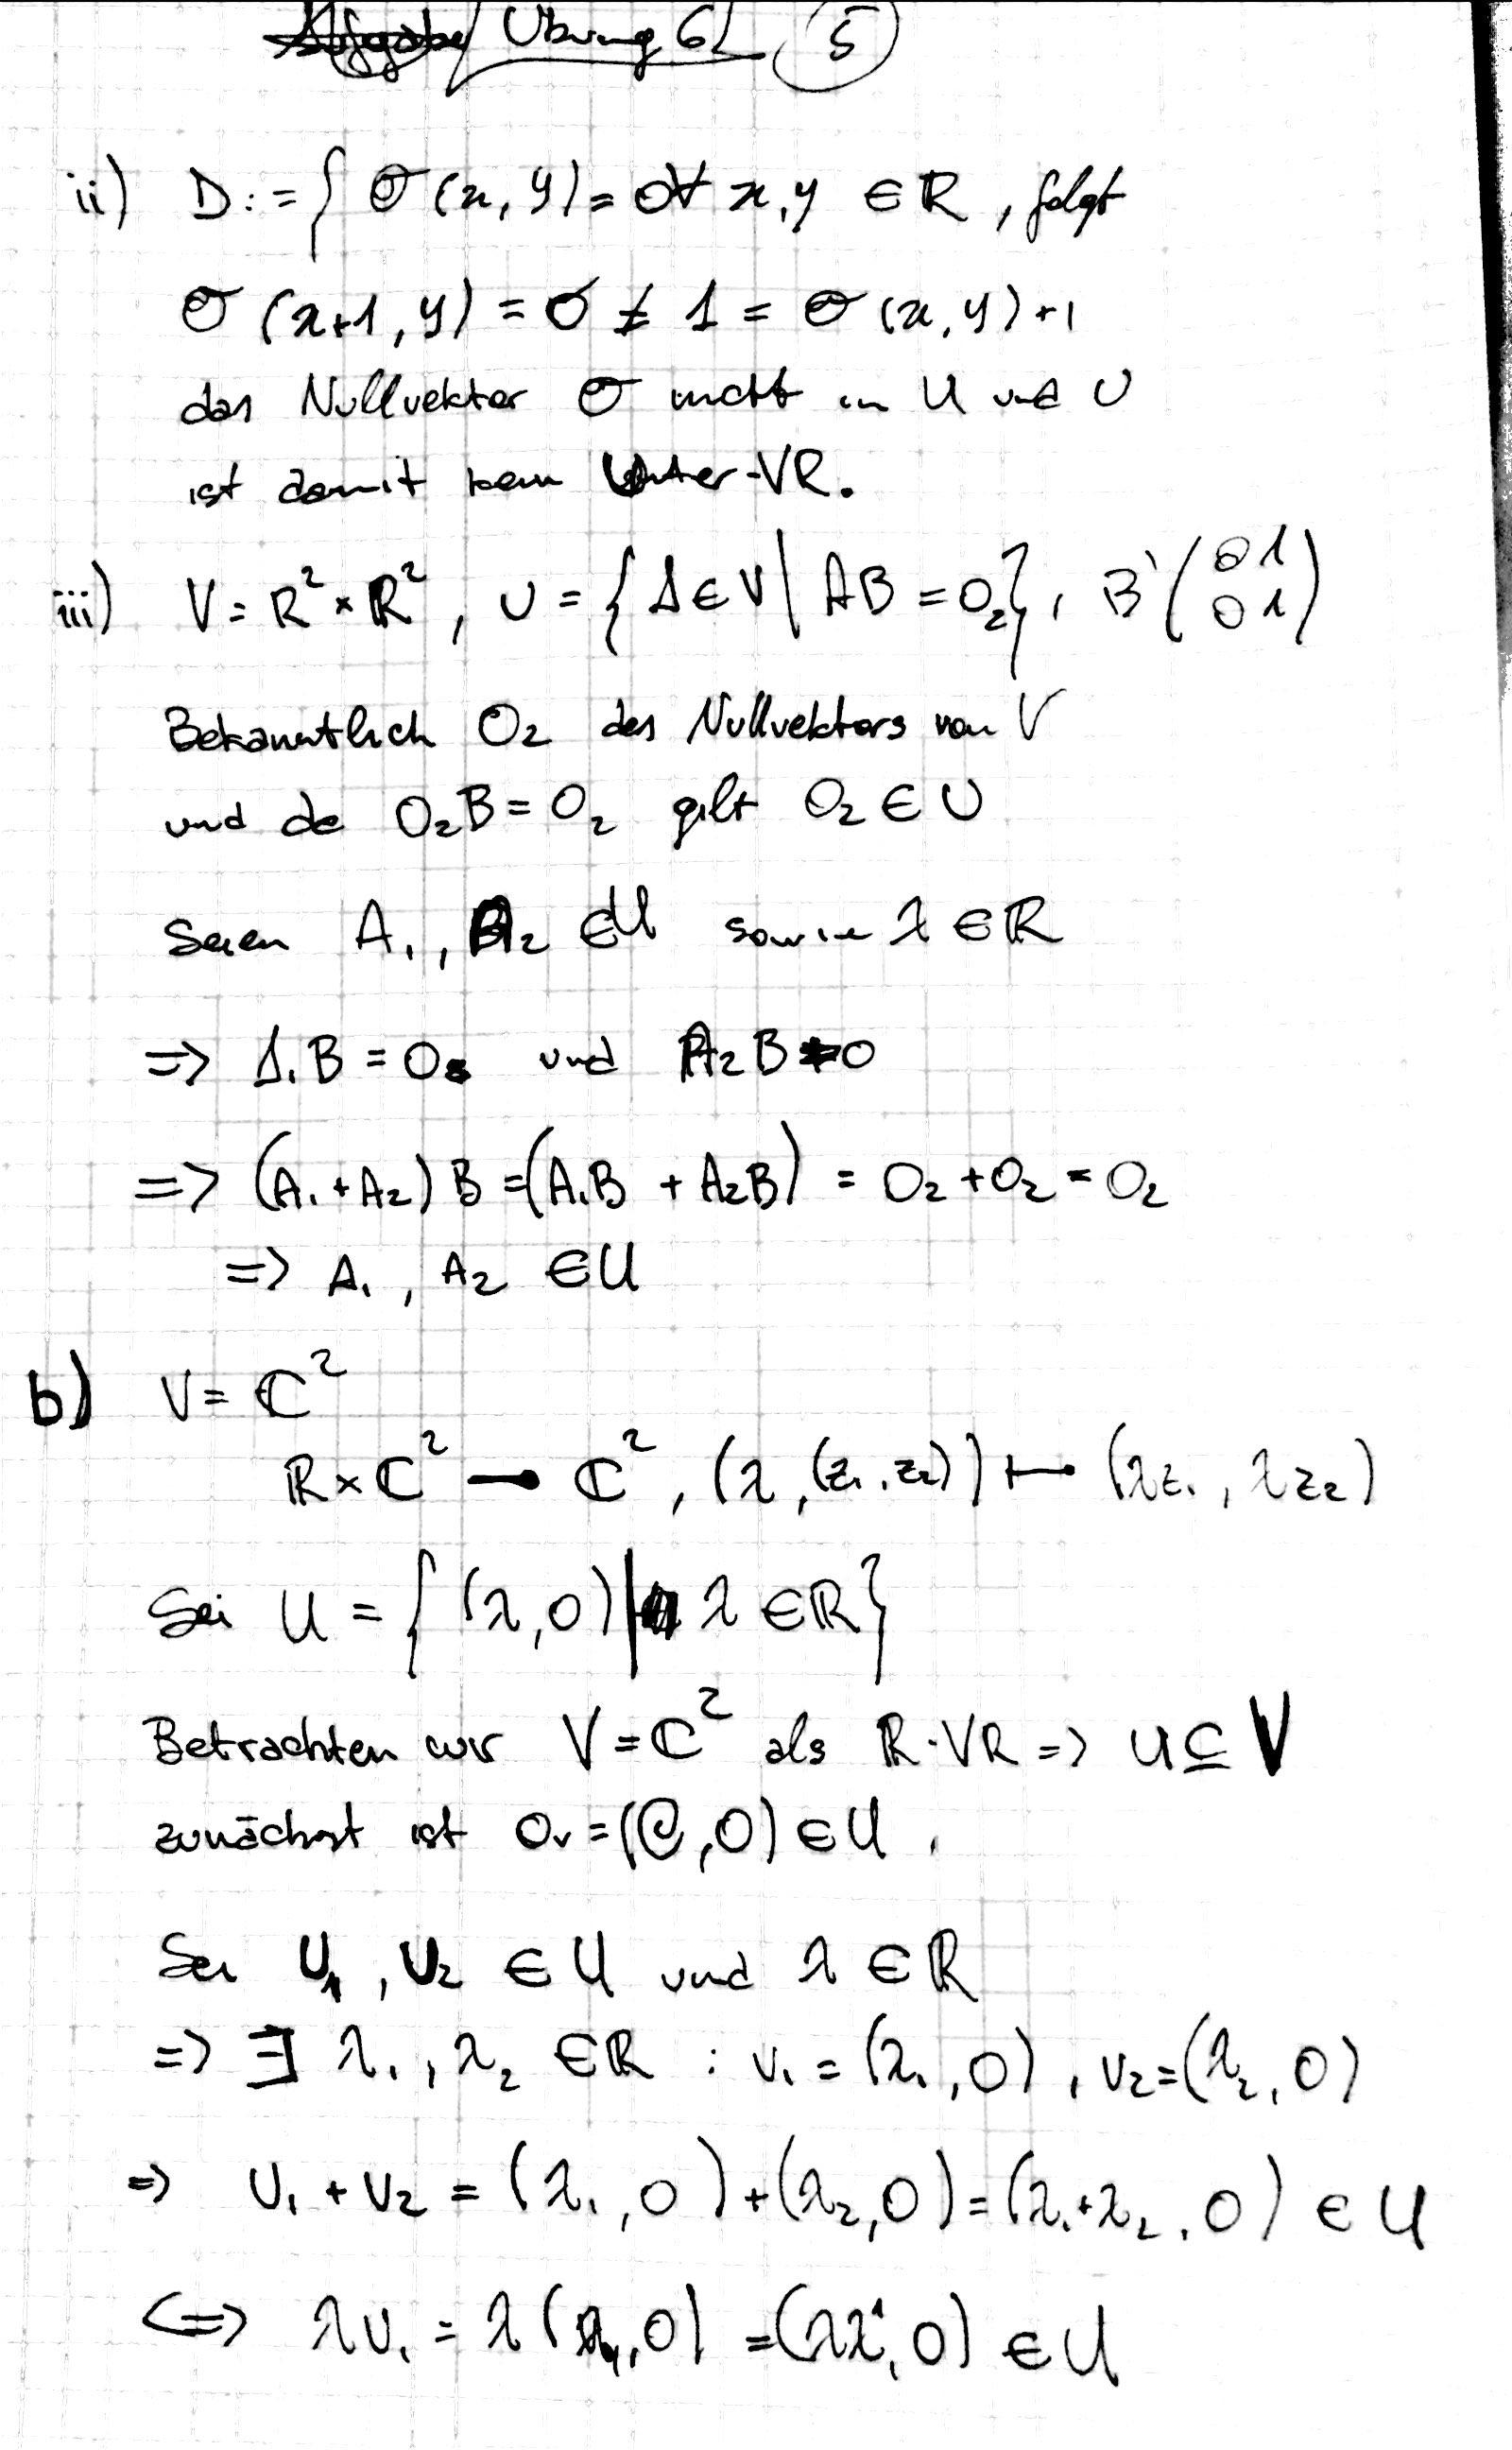 Übung 6 5
ii) D:={ O(x,y)=0∀ x,y ∈ℝ, folgt
O(x+1,y)=0≠1=O(x,y)+1
das Nullvektor O nicht in U und U
ist damit kein Unter-VR.
iii) V=ℝ²×ℝ², U={A∈V|AB=O₂}, B(0 1
0 1)
Bekanntlich O₂ des Nullvektors von V
und da O₂B=O₂ gilt O₂∈U
Seien A₁, A₂ ∈U sowie λ∈ℝ
=> A₁B=O₂ und A₂B=0
=> (A₁+A₂)B=(A₁B+A₂B)=O₂+O₂=O₂
=> A₁, A₂ ∈U
b) V=ℂ²
ℝ×ℂ²→ℂ², (λ,(z₁,z₂))↦(λz₁,λz₂)
Sei U={(λ,0)|λ∈ℝ}
Betrachten wir V=ℂ² als ℝ-VR => U⊆V
zunächst ist Oᵥ=(0,0)∈U.
Sei U₁,U₂∈U und λ∈ℝ
=> ∃ λ₁,λ₂∈ℝ : v₁=(λ₁,0), v₂=(λ₂,0)
=> U₁+U₂=(λ₁,0)+(λ₂,0)=(λ₁+λ₂,0)∈U
<=> λU₁=λ(λ₁,0)=(λλ₁,0)∈U